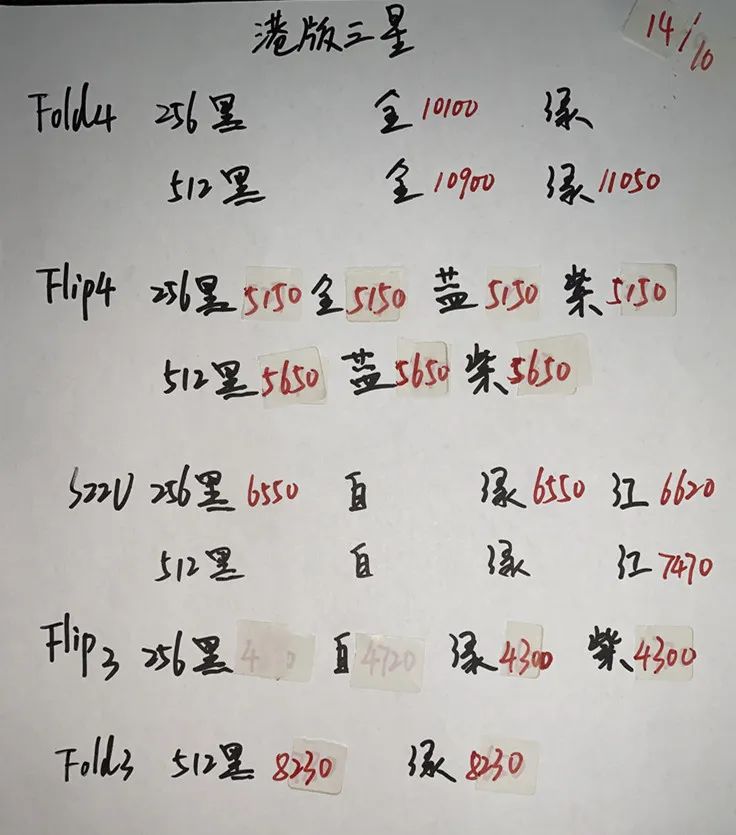 港版三星 14/10
Fold4 256黑 金10100 绿
512黑 金10900 绿11050
Flip4 256黑5150 金5150 蓝5150 紫5150
512黑5650 蓝5650 紫5650
S22U 256黑6550 白 绿6550 红6620
512黑 白 绿 红7470
Flip3 256黑 白4720 绿4300 紫4300
Fold3 512黑8230 绿8230